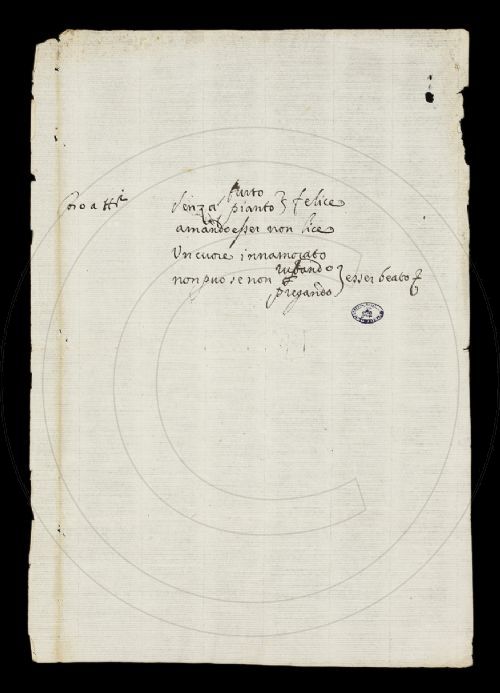 furto
senza pianto } felice
amando esser non lice
Un cuore innamorato
rubando
non può se non } esser beato
pregando